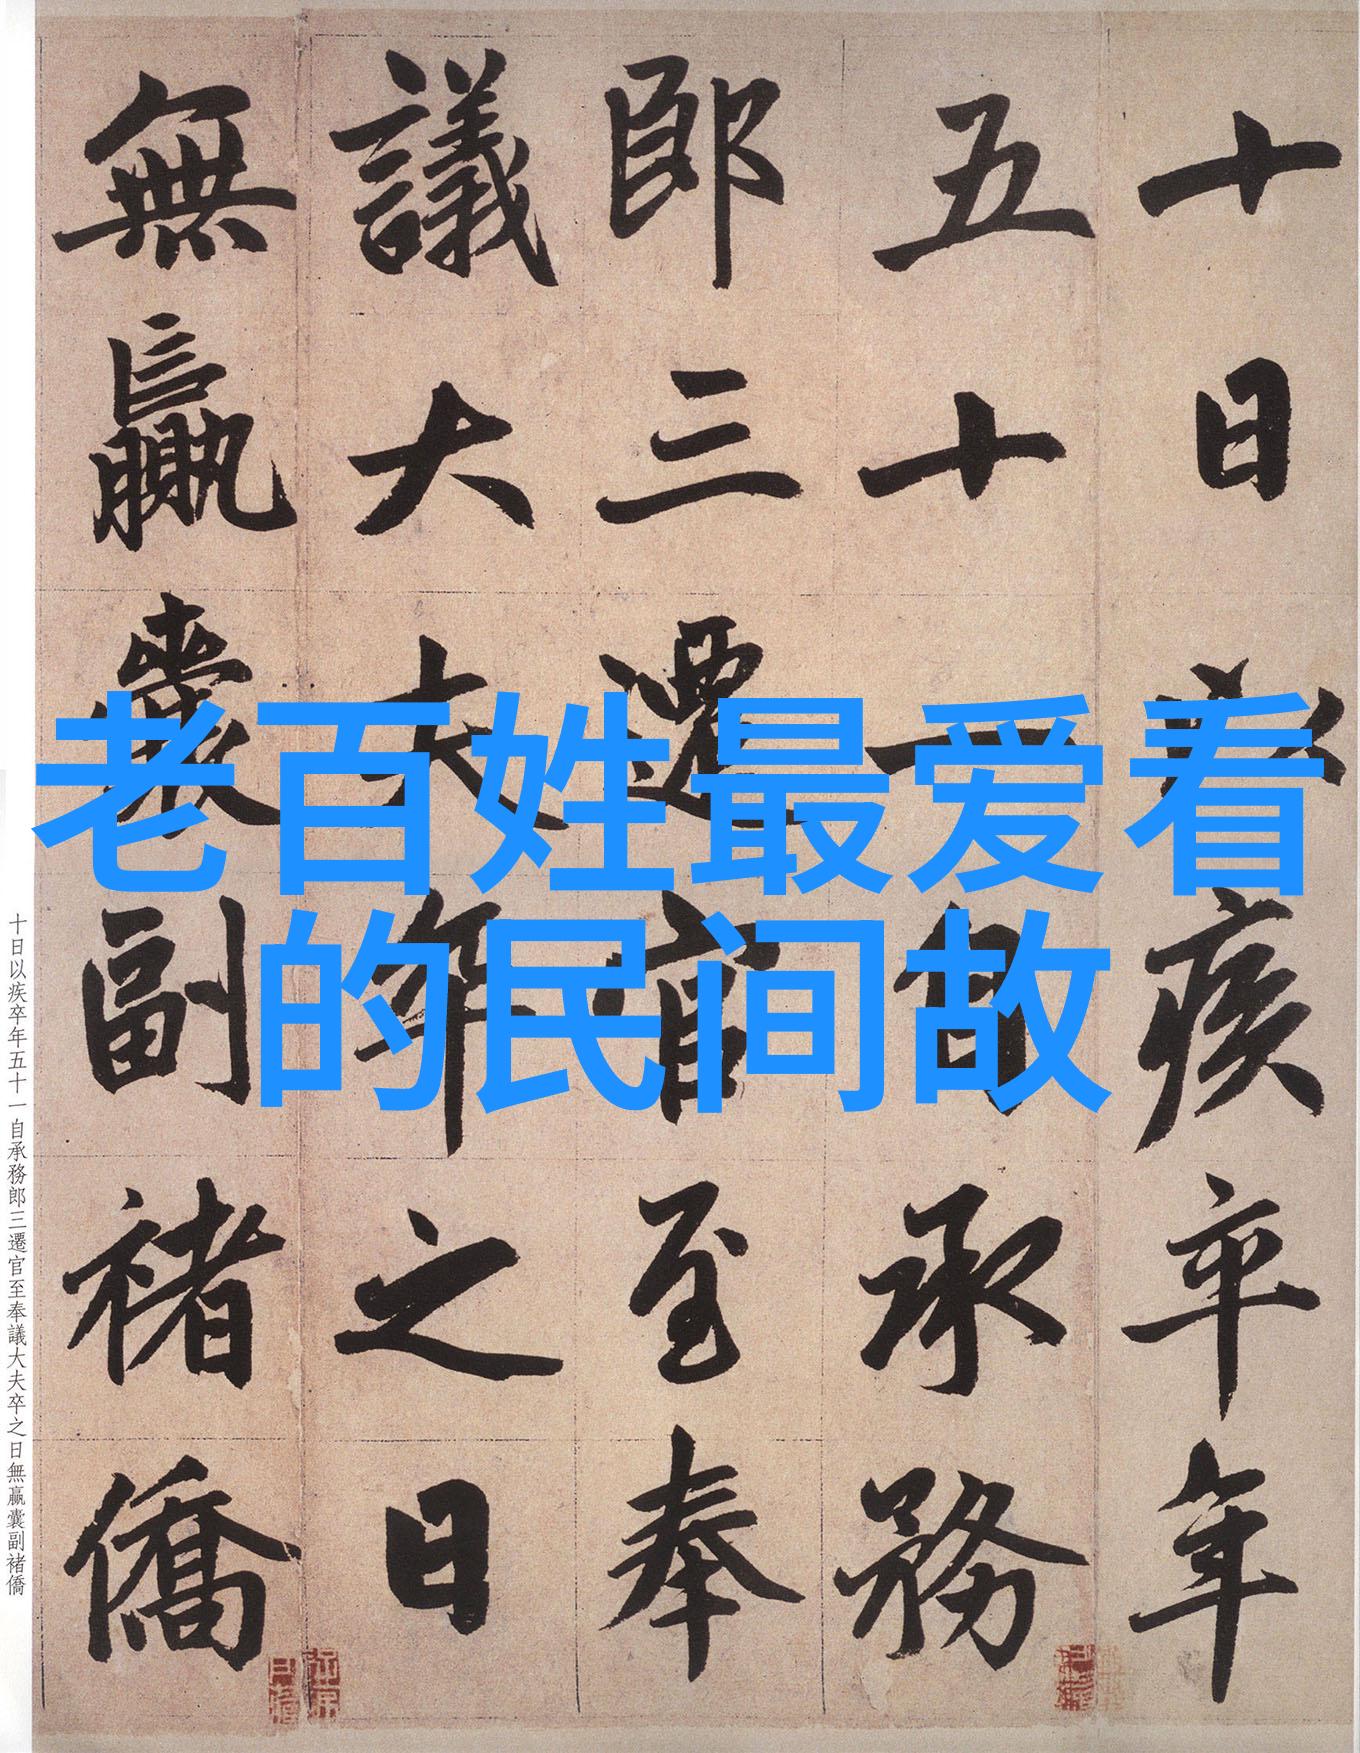 十日以疾卒年
五十一自承務
郎三遷官至奉
議大夫卒之日
無羸囊副褚僑
老百姓最爱看
的民间故
十日以疾卒年五十一自承務郎三遷官至奉議大夫卒之日無羸囊副褚僑